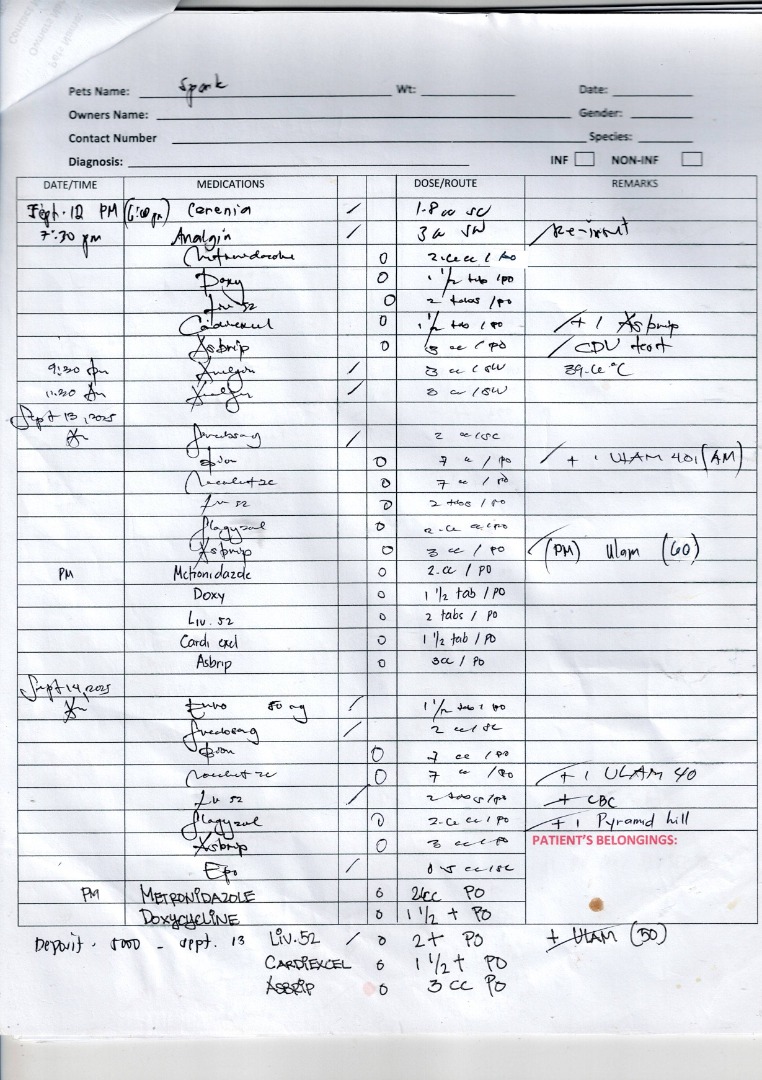 Pets Name: Spark Wt: Date:
Owners Name: Gender:
Contact Number Species:
Diagnosis: INF NON-INF
DATE/TIME MEDICATIONS DOSE/ROUTE REMARKS
Sept. 12 PM (6:00 pm) Cerenia / 1.8 cc SC
7:30 pm Analgin / 3 cc / Re-insert
Metronidazole 0 / PO
Doxy 0 1 1/2 tab / PO
Liv 52 0 2 tabs / PO
Cardiexcel 0 1 1/2 tab / PO / + 1 Asbrip
Asbrip 0 3 cc / PO / CDV test
9:30 pm Analgin / 3 cc / 39.6 °C
11:30 Analgin / 3 cc /
Sept 13, 2025
/ 2 cc / SC
0 7 cc / PO / + 1 ULAM 40 (AM)
0 7 cc / PO
Liv 52 0 2 tabs / PO
Flagyzol 0 cc / PO
Asbrip 0 3 cc / PO / (PM) Ulam (60)
PM Metronidazole 0 / PO
Doxy 0 1 1/2 tab / PO
Liv. 52 0 2 tabs / PO
Cardi excl 0 1 1/2 tab / PO
Asbrip 0 3cc / PO
Sept 14, 2025
Enro 50 mg / 1 1/2 tabs PO
/ 2 cc / SC
0 7 cc / PO
0 7 cc / PO + 1 ULAM 40
Liv 52 / 2 tabs / PO + CBC
Flagyzol 0 cc / PO + 1 Pyramid hill
Asbrip 0 3 cc / PO PATIENT'S BELONGINGS:
Epo / 0.5 cc / SC
PM METRONIDAZOLE 0 PO
DOXYCYCLINE 0 1 1/2 t PO
Deposit - 5000 - sept. 13 Liv.52 / 0 2 t PO + ULAM (50)
CARDIEXCEL 0 1 1/2 t PO
ASBRIP 0 3 cc PO